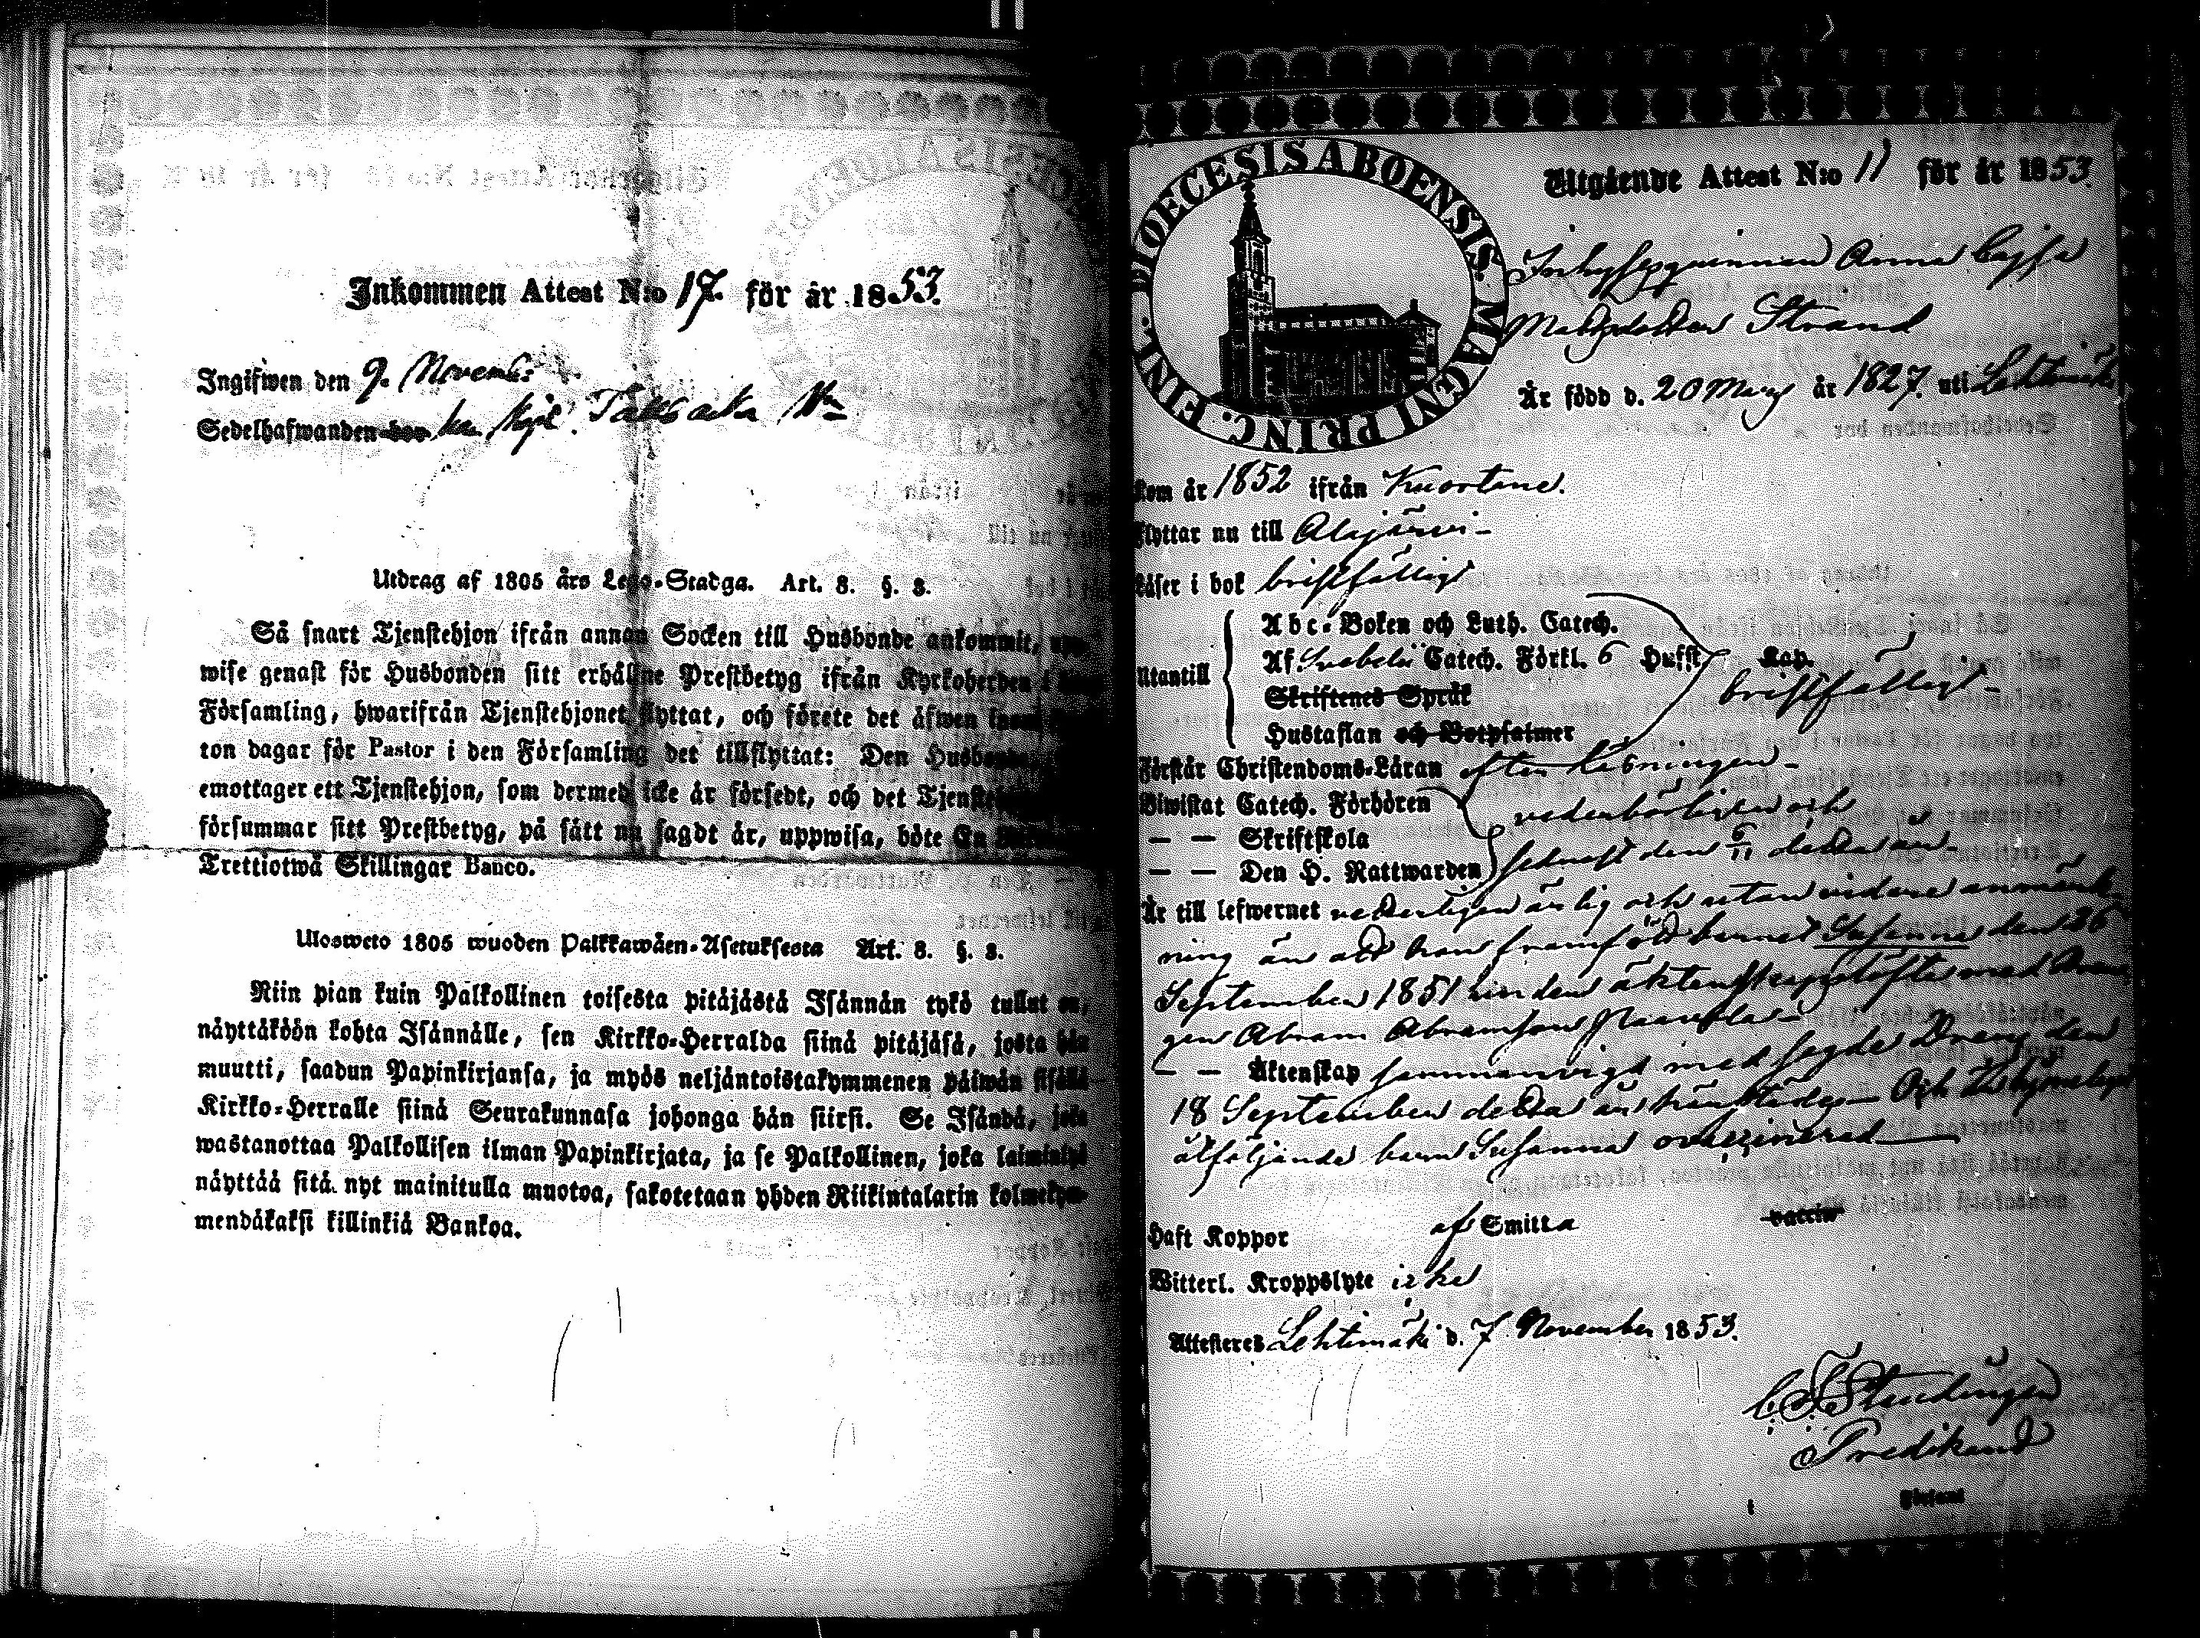 Inkommen Attest N:o 17. för år 1853.
Ingifwen den 9. Novemb:
Sedelhafwanden bor
Utdrag af 1805 års Lego-Stadga. Art. 8. §. 8.
Så snart Tjenstehjon ifrån annan Socken till Husbonde ankommit, upp-
wise genast för Husbonden sitt erhållne Prestbetyg ifrån Kyrkoherden i
Församling, hwarifrån Tjenstehjonet flyttat, och förete det äfwen inom
ton dagar för Pastor i den Församling det tillflyttat: Den Husbonde
emottager ett Tjenstehjon, som dermed icke är försedt, och det Tjenstehjon
försummar sitt Prestbetyg, på sätt nu sagdt är, uppwisa, böte En
Trettiotwå Skillingar Banco.
Ulosweto 1805 wuoden Palkkawäen-Asetuksesta Art. 8. §. 8.
Niin pian kuin Palkollinen toisesta pitäjästä Isännän tykö tullut on,
näyttäköön kohta Isännälle, sen Kirkko-Herralda siinä pitäjäsä, josta hän
muutti, saadun Papinkirjansa, ja myös neljäntoistakymmenen päiwän sisällä
Kirkko-Herralle siinä Seurakunnasa johonga hän siirsi. Se Isändä, joka
wastanottaa Palkollisen ilman Papinkirjata, ja se Palkollinen, joka laiminlyö
näyttää sitä nyt mainitulla muotoa, sakotetaan yhden Riikintalarin kolmekym-
mendäkaksi killinkiä Bankoa.
DIOECESIS ABOENSIS. MAGNI PRINC. FINL.
Utgående Attest N:o 11 för år 1853.
Inhysesqvinnan Anna Cajsa
Mattsdotter Strand
Är född d. 20 Mars år 1827. uti Lehtimäki
kom år 1852 ifrån Kuortane.
flyttar nu till Alajärvi-
läser i bok bristfälligt
utantill
Abc-Boken och Luth. Catech.
Af Svebelii Catech. Förkl. 6 Hufst. Kap.
bristfälligt-
Skriftenes Språk
Hustaflan och Botpsalmer
Förstår Christendoms-Läran efter läsningen-
Biwistat Catech. Förhören
vederbörligen och
— — Skriftskola
— — Den H. Nattwarden senast den 6/11 detta år.
Är till lefwernet vederligen ärlig och utan vidare anmärk
ning än att hon framfödt barnet Susanna den 26
September 1851 under äktenskapslöfte med Drän
gen Abram Abramson
— — Äktenskap sammanvigd med sagde Dräng den
18 September detta år härstädes- Och
åtföljande barn Susanna ovaccinerad
Haft Koppor af Smitta vaccin
Witterl. Kroppslyte icke
Attesteres Lehtimäki d. 7 November 1853.
Predikant